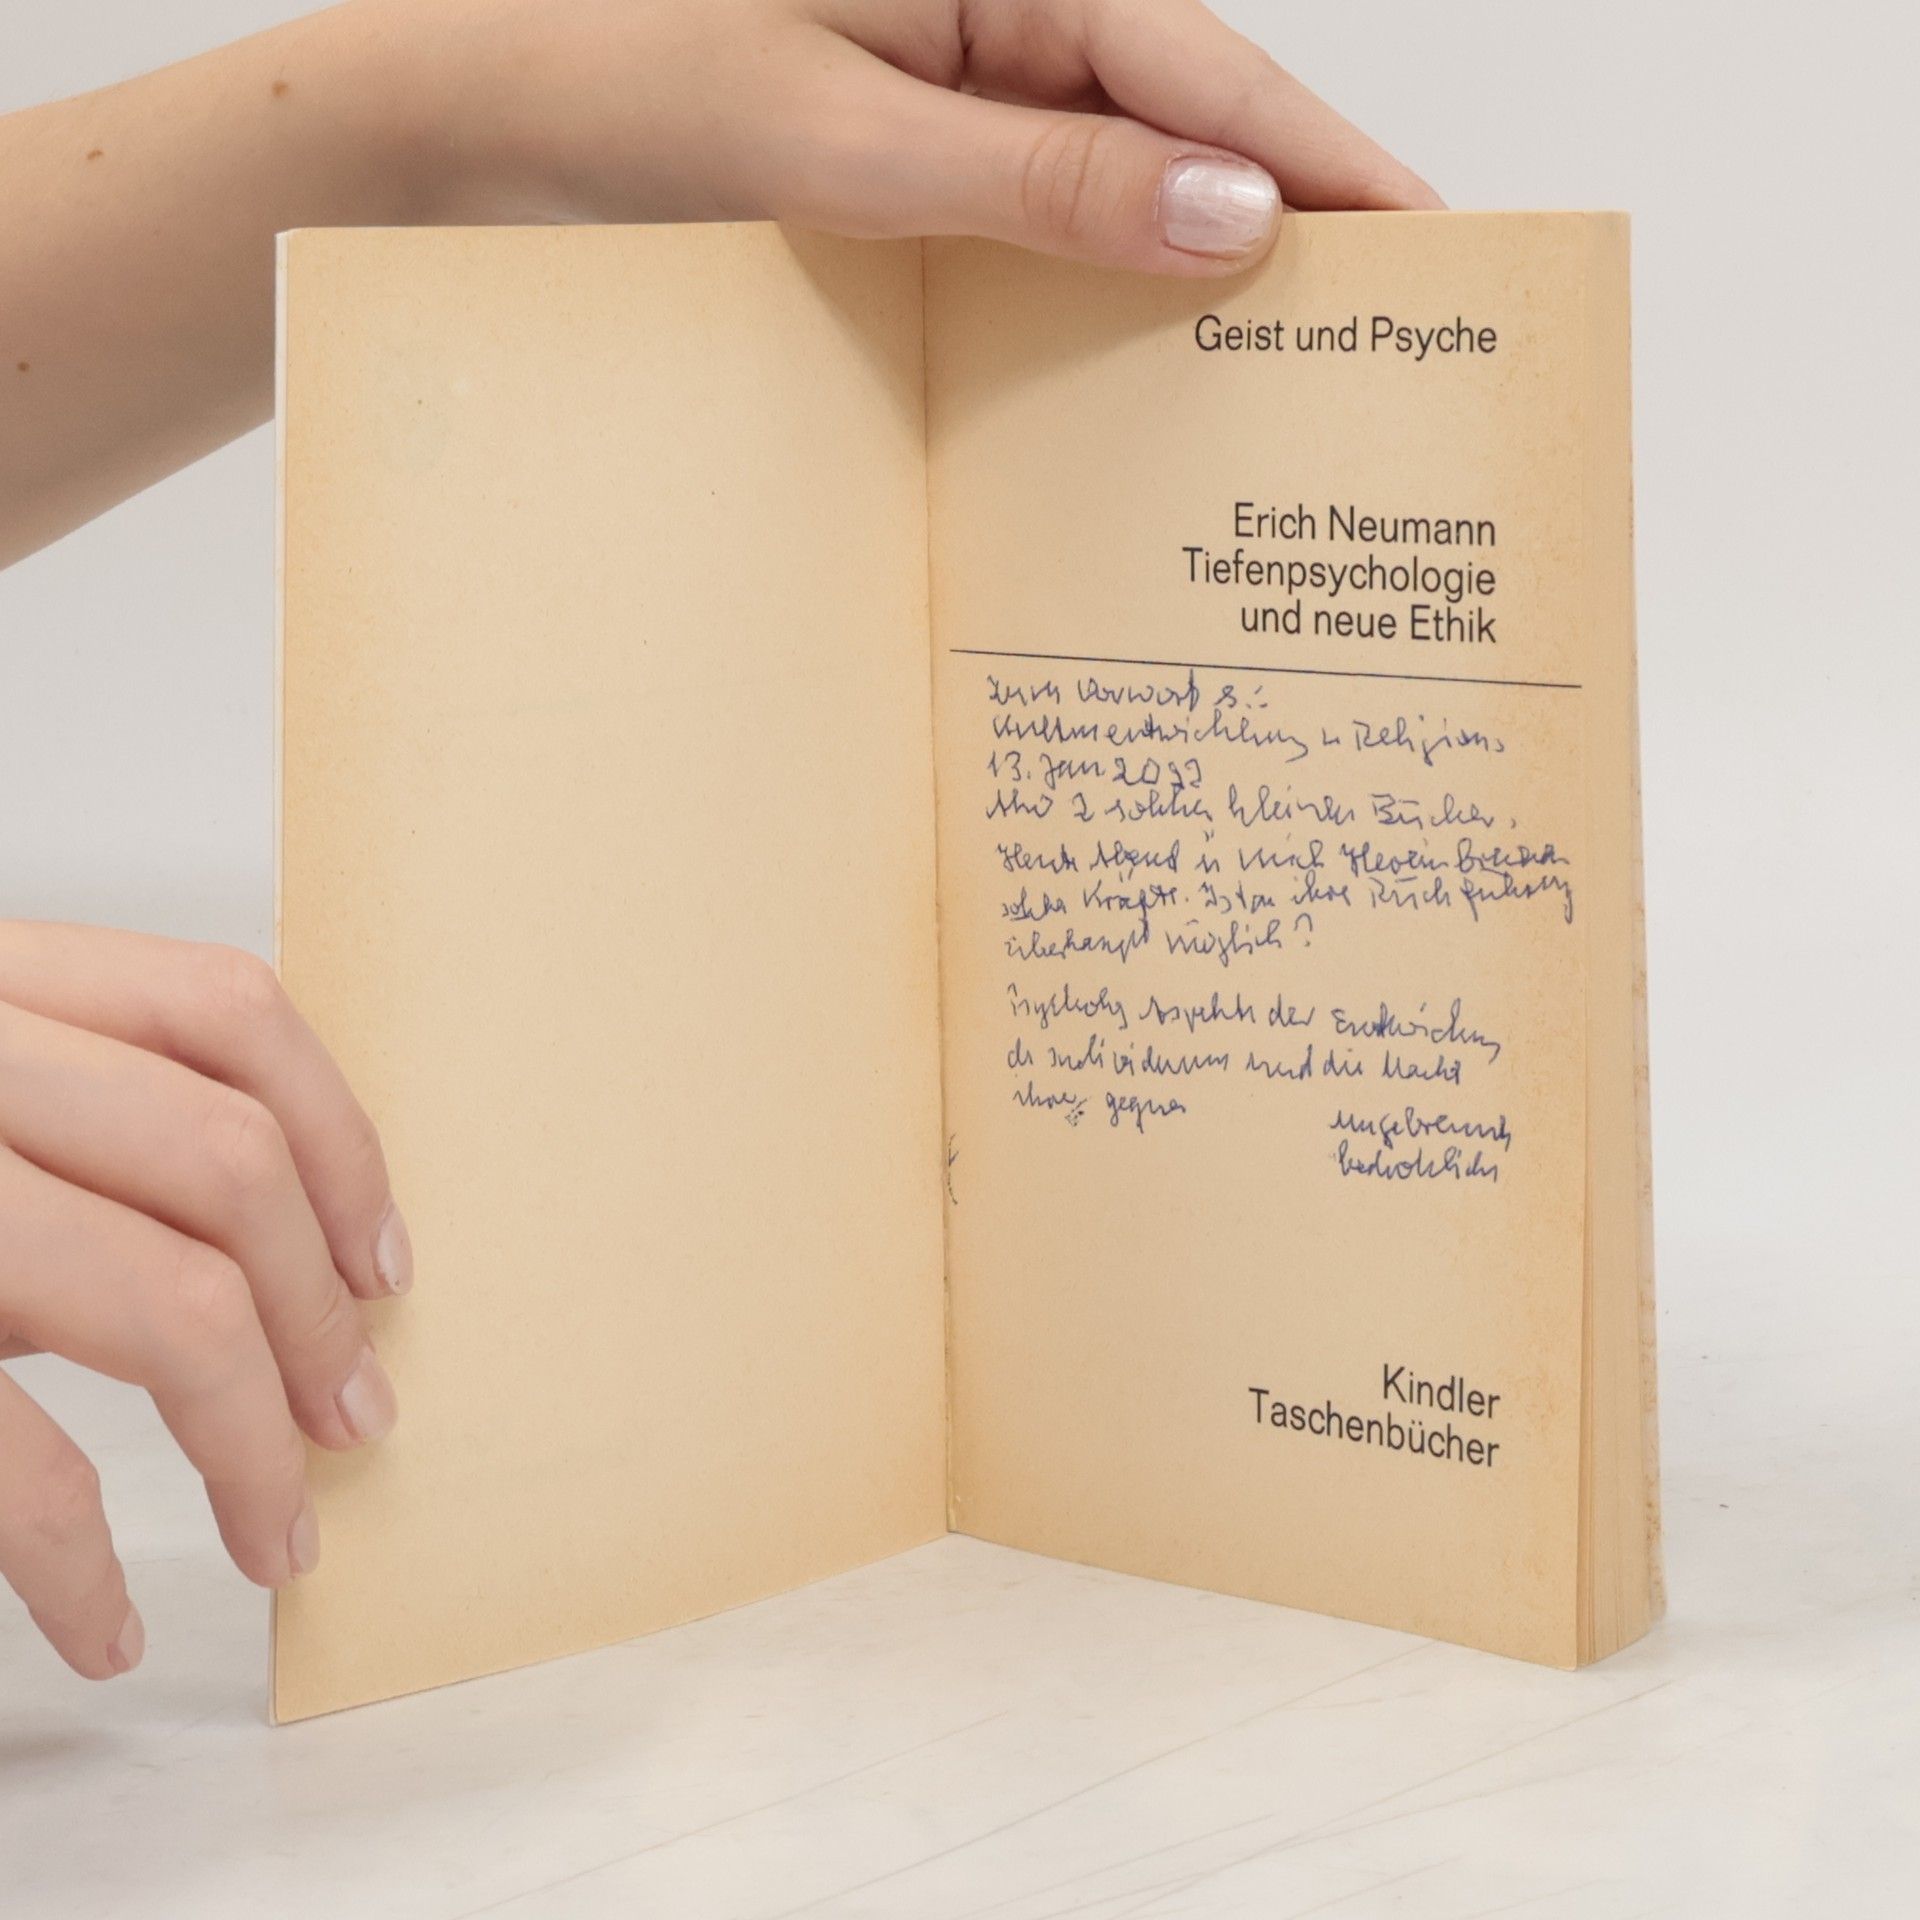 Geist und Psyche
Erich Neumann
Tiefenpsychologie
und neue Ethik
zum Vorwort s.:
Kulturentwicklung u Religion
13. Jan
2 solcher kleinen Bücher.
Heute Abend
solcher Kräfte. Ist ihre Rückführung
überhaupt möglich?
Psycholog Aspekte der Entwicklung
des Individuums und die Macht
ihrer gegner
bedrohlich
Kindler
Taschenbücher